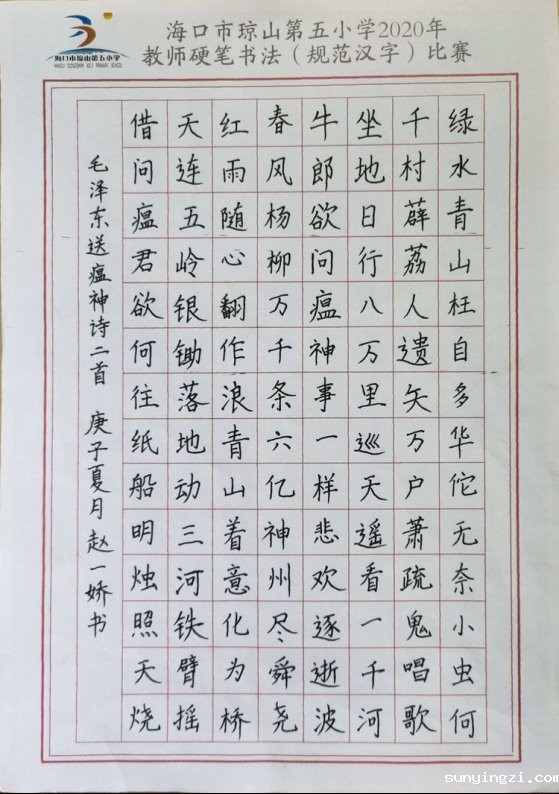 海口市琼山第五小学
海口市琼山第五小学2020年
教师硬笔书法（规范汉字）比赛
绿水青山枉自多华佗无奈小虫何
千村薜荔人遗矢万户萧疏鬼唱歌
坐地日行八万里巡天遥看一千河
牛郎欲问瘟神事一样悲欢逐逝波
春风杨柳万千条六亿神州尽舜尧
红雨随心翻作浪青山着意化为桥
天连五岭银锄落地动三河铁臂摇
借问瘟君欲何往纸船明烛照天烧
毛泽东送瘟神诗二首 庚子夏月 赵一娇书
sunyingzi.com